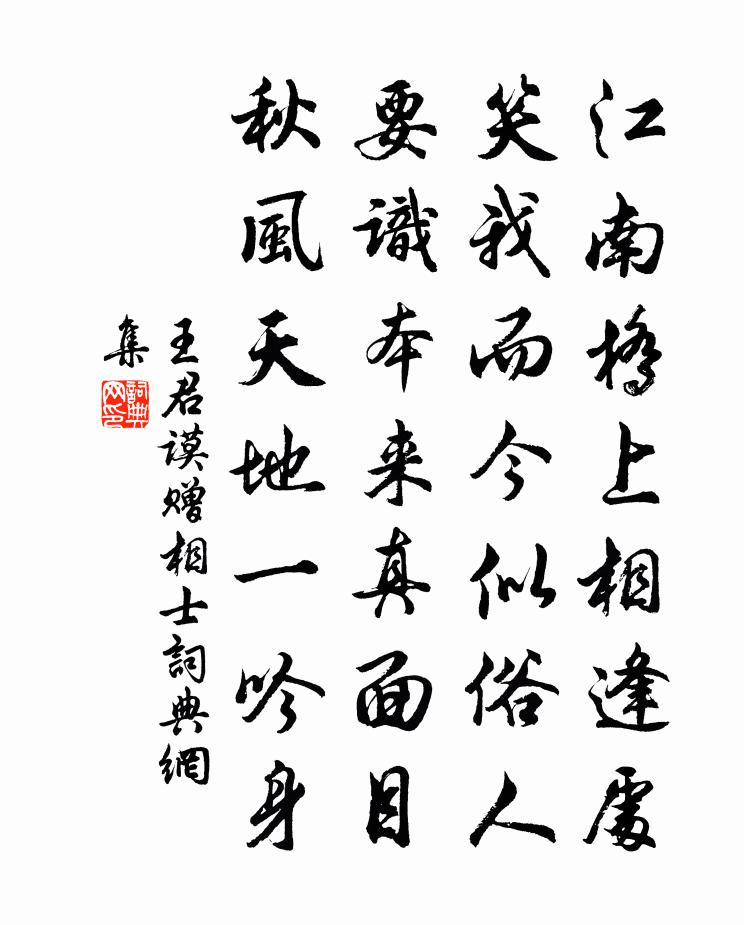 江南橋上相逢處
笑我而今似俗人
要識本来真面目
秋風天地一吟身
王君謨贈相士詞典網
集
詞典網印